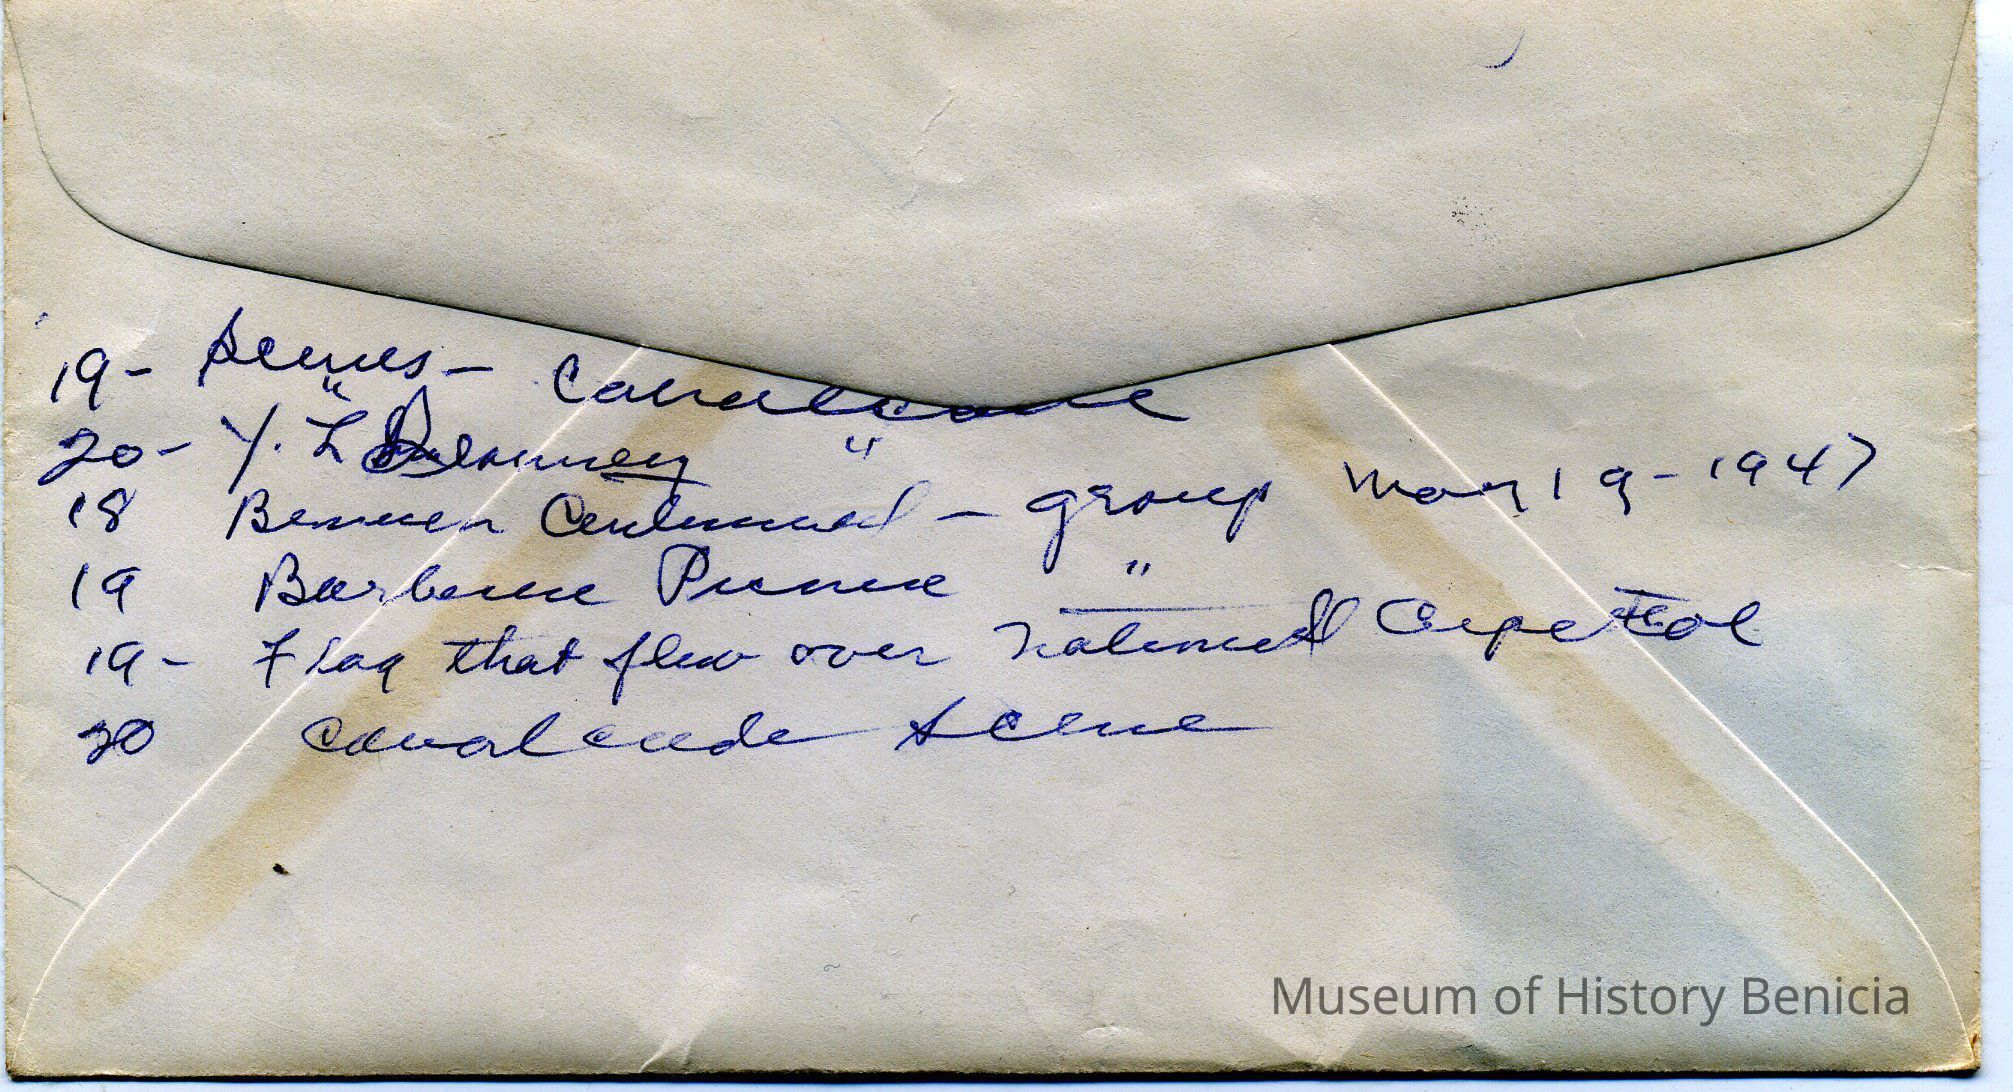 19- Scenes - Cavalcade
20- " Y. L. "
18 Benicia Centennial - group May 19-1947
19 Barbecue Picnic "
19- Flag that flew over National Capitol
20 Cavalcade Scene
Museum of History Benicia